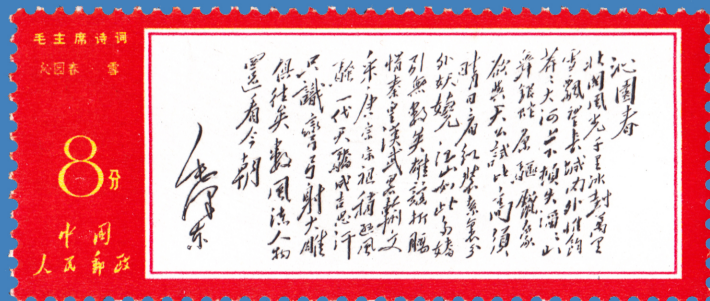 毛主席诗词
沁园春·雪
8分
中國
人民郵政
沁園春
北國風光千里冰封萬里
雪飄望長城內外惟餘
莽莽大河上下頓失滔滔山
舞銀蛇原驅蠟象
欲與天公試比高須
晴日看紅裝素裹分
外妖嬈江山如此多嬌
引無數英雄競折腰
惜秦皇漢武略輸文
采唐宗宋祖稍遜風
騷一代天驕成吉思汗
只識彎弓射大雕
俱往矣數風流人物
還看今朝
毛澤東